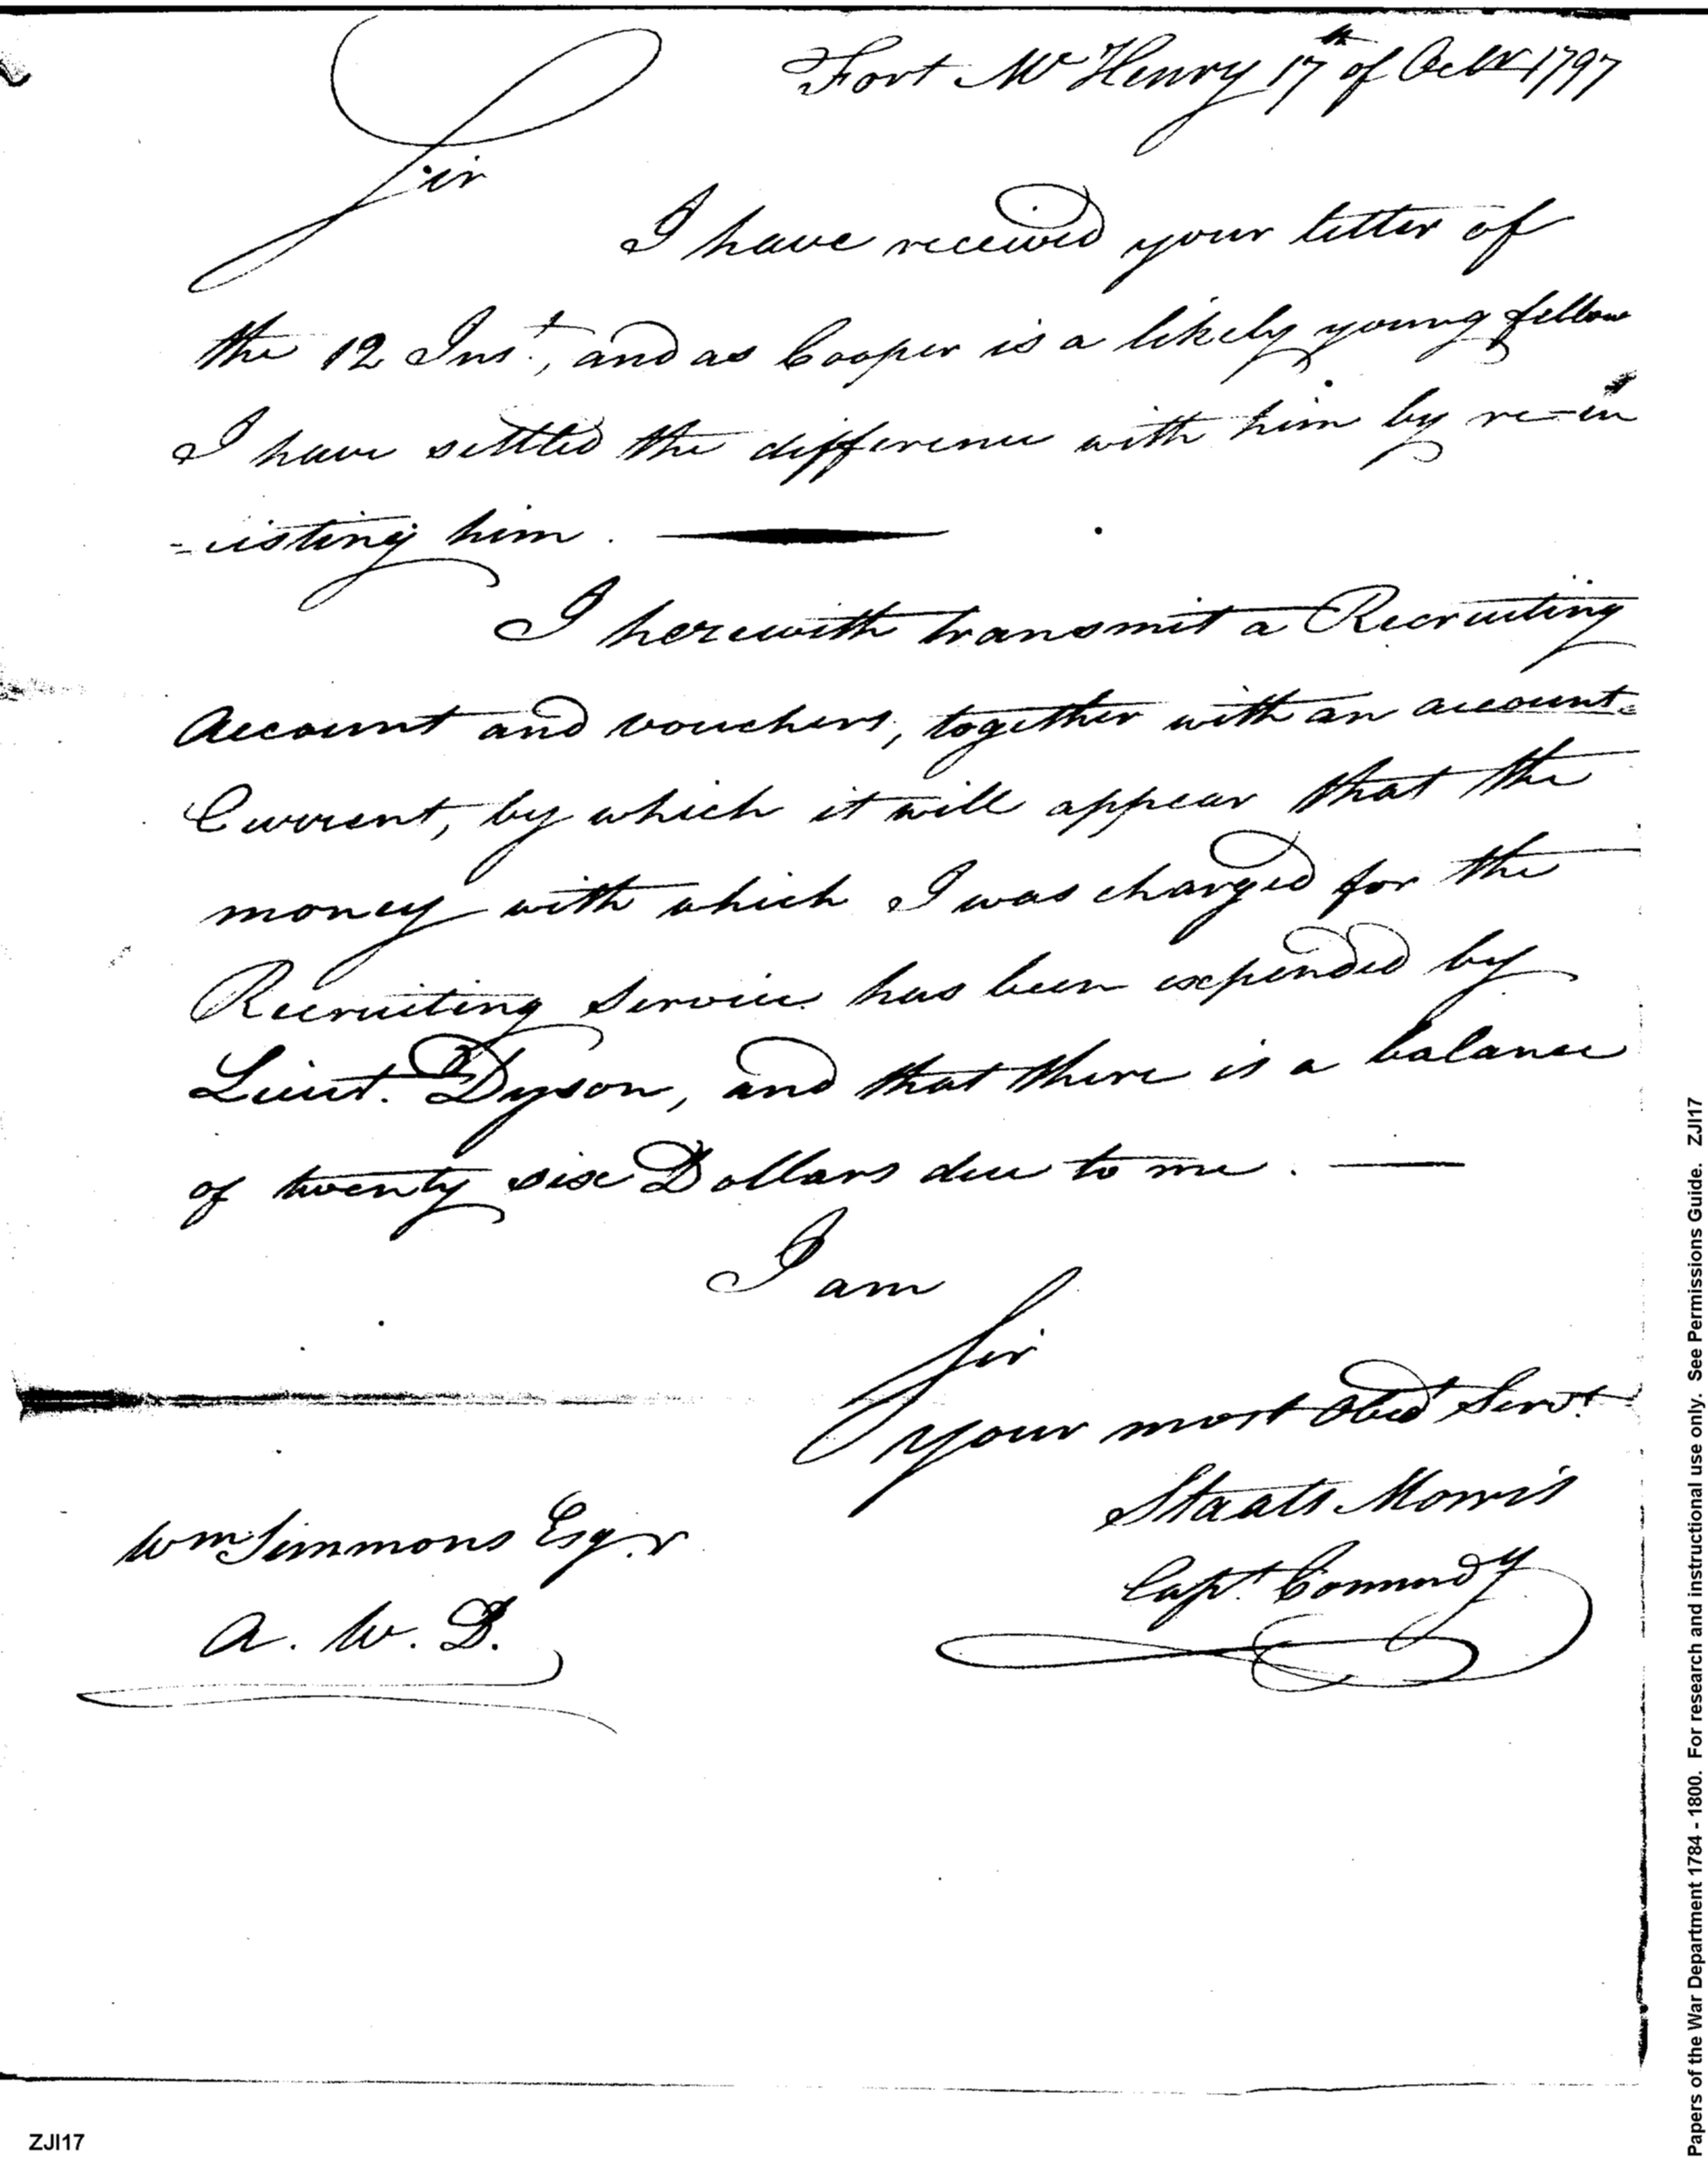 Fort Mc Henry 17th of Octr 1797
Sir
I have received your letter of
the 12 Inst., and as Cooper is a likely young fellow
I have settled the difference with him by re-in
-listing him.
I herewith transmit a Recruiting
Account and vouchers, together with an account-
Current, by which it will appear that the
money with which I was charged for the
Recruiting Service has been expended by
Lieut. Dyson, and that there is a balance
of twenty six Dollars due to me.
I am
Sir
your most Obed Servt.
Staats Morris
Capt. Commndg
Wm Simmons Esqr
A. W. D.
ZJI17
Papers of the War Department 1784 - 1800. For research and instructional use only. See Permissions Guide. ZJI17